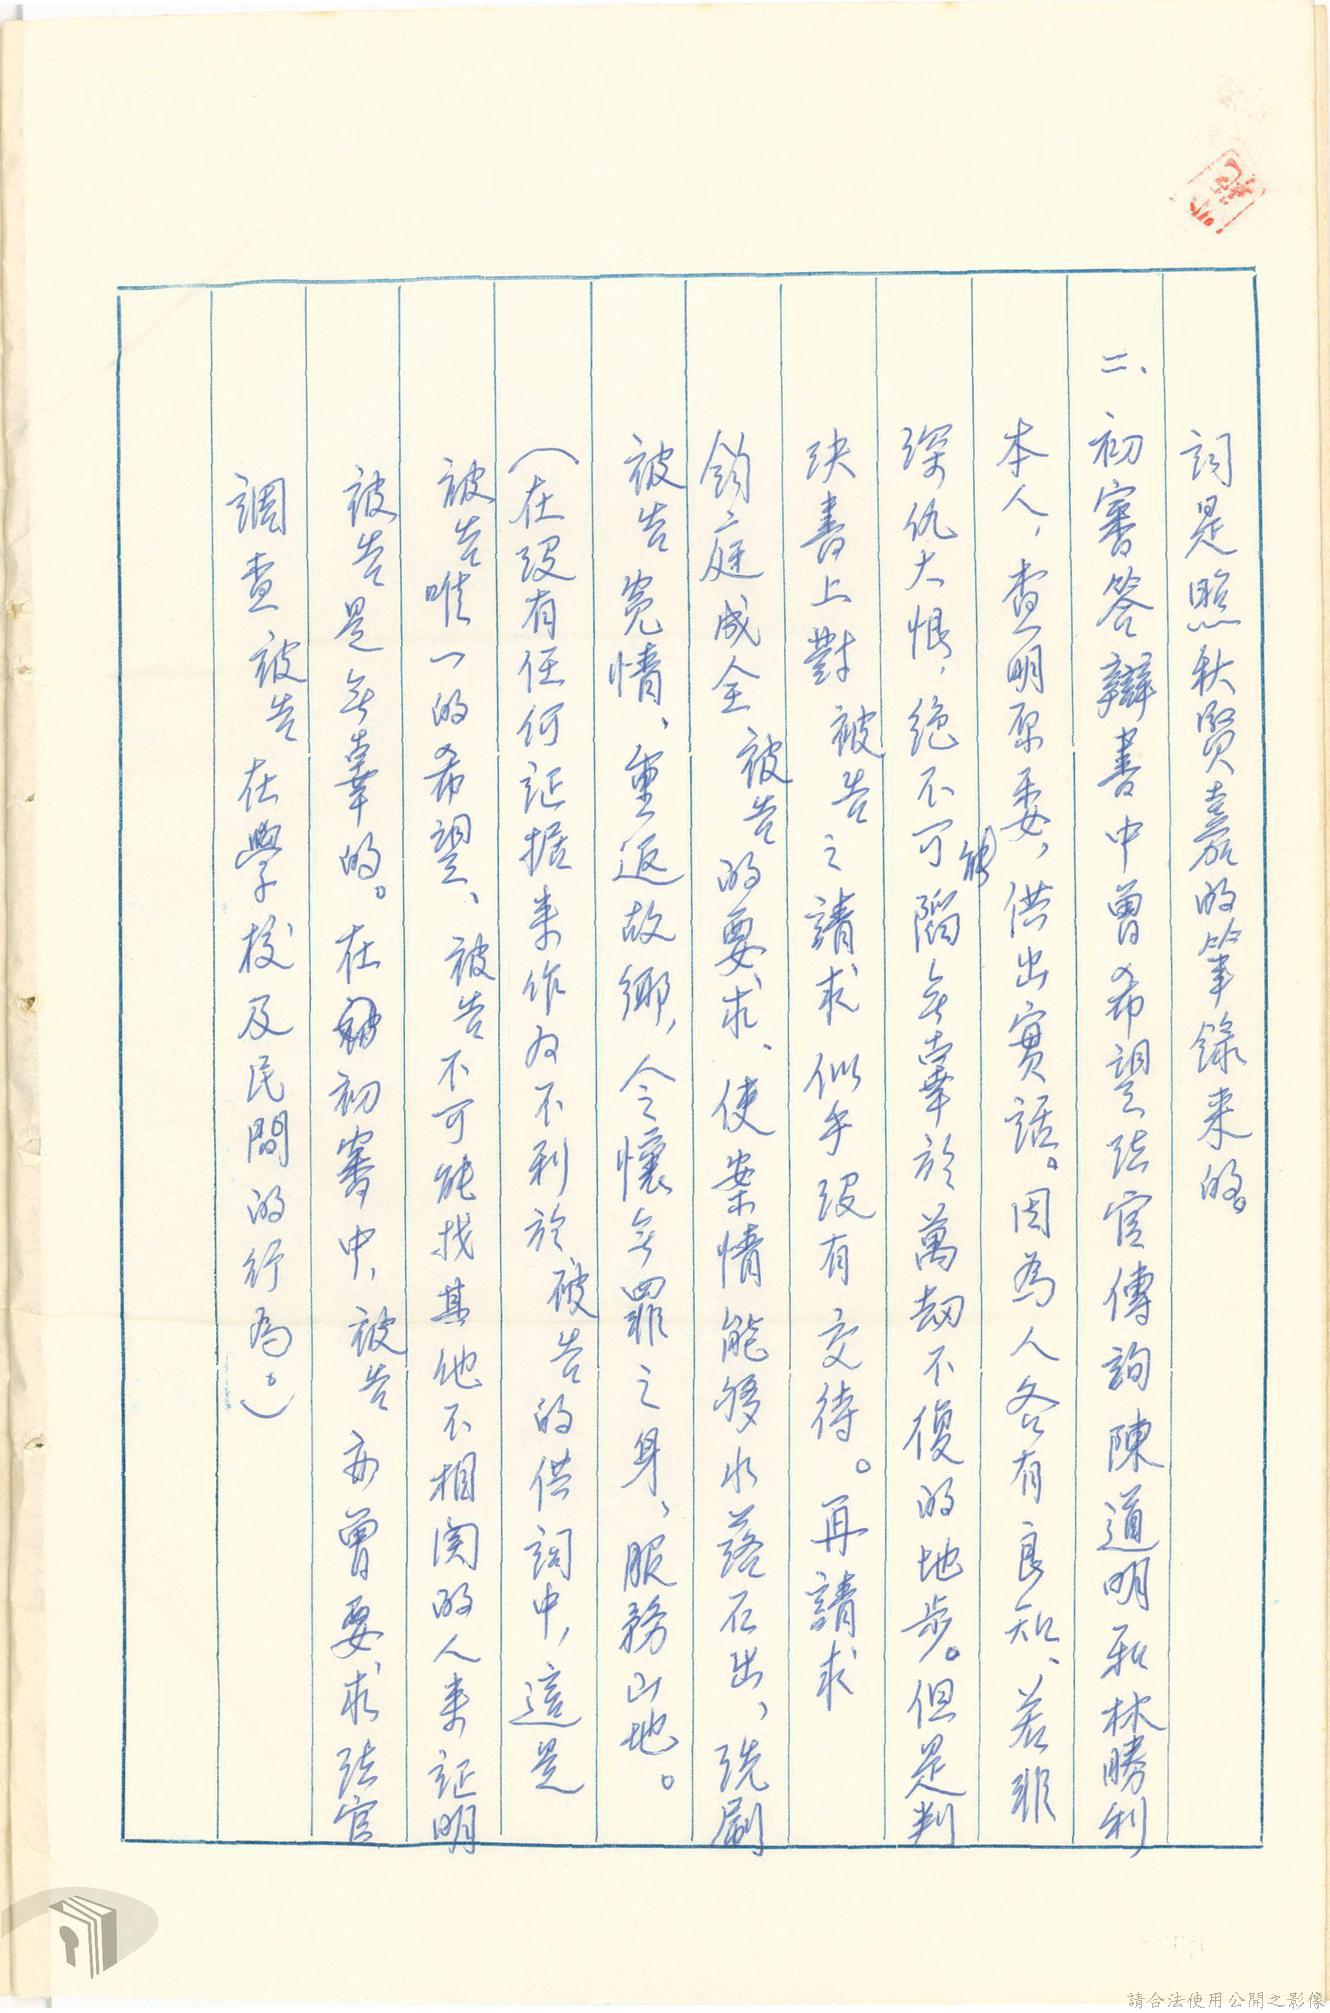 詞是照秋賢嘉的筆錄来的。
二、初審答辯書中曾希望法官傳詢陳道明和林勝利
本人，查明原委，供出實話。因為人各有良知、若非
深仇大恨，絕不可能陷無辜於萬劫不復的地步。但是判
決書上對被告之請求似乎没有交待。再請求
鈞庭成全被告的要求、使案情能够水落石出，洗刷
被告寃情、重返故鄉，令懷無罪之身，服務山地。
（在没有任何証据来作为不利於被告的供詞中，這是
被告唯一的希望、被告不可能找其他不相関的人来証明
被告是無辜的。在初審中，被告亦曾要求法官
調查被告在學校及民間的行為。）
請合法使用公開之影像